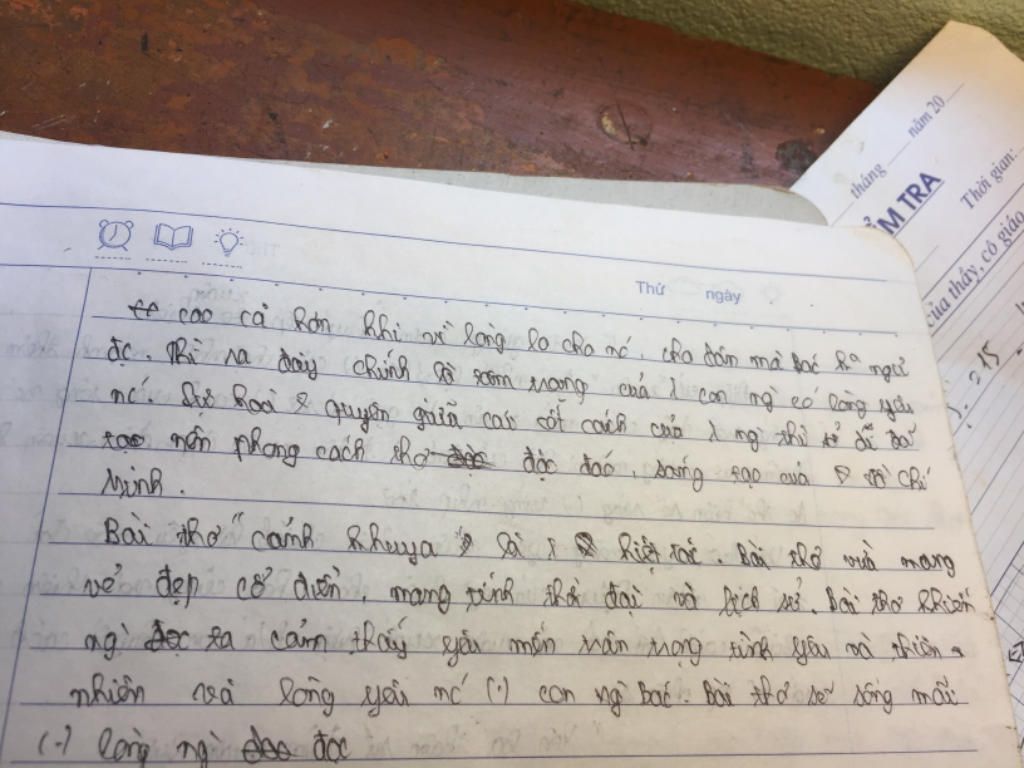 Thứ ngày
cao cả hơn khi vì lòng lo cho nć, cho dân mà Bác kº ngủ
đc. Thì ra đây chính là tâm trạng của 1 con ng̀ có lòng yêu
nć. Sự hoà & quyện giữa cao cốt cách của 1 ng̀ thi sĩ đã
nên phong cách thơ độc đáo, sáng tạo của Hồ Chí
Minh.
Bài thơ "cảnh khuya là 1 kiệt tác. Bài thơ vừa mang
vẻ đẹp cổ điển, mang tính thời đại và lịch sử. Bài thơ khiến
ng̀ ta cảm thấy yêu mến trân trọng tình yêu và thiên
nhiên và lòng yêu nć (.) con ng̀ Bác. Bài thơ sẽ sống mãi
(.) lòng ng̀ đọc
tháng năm 20
ỂM TRA
Thời gian:
của thầy, cô giáo